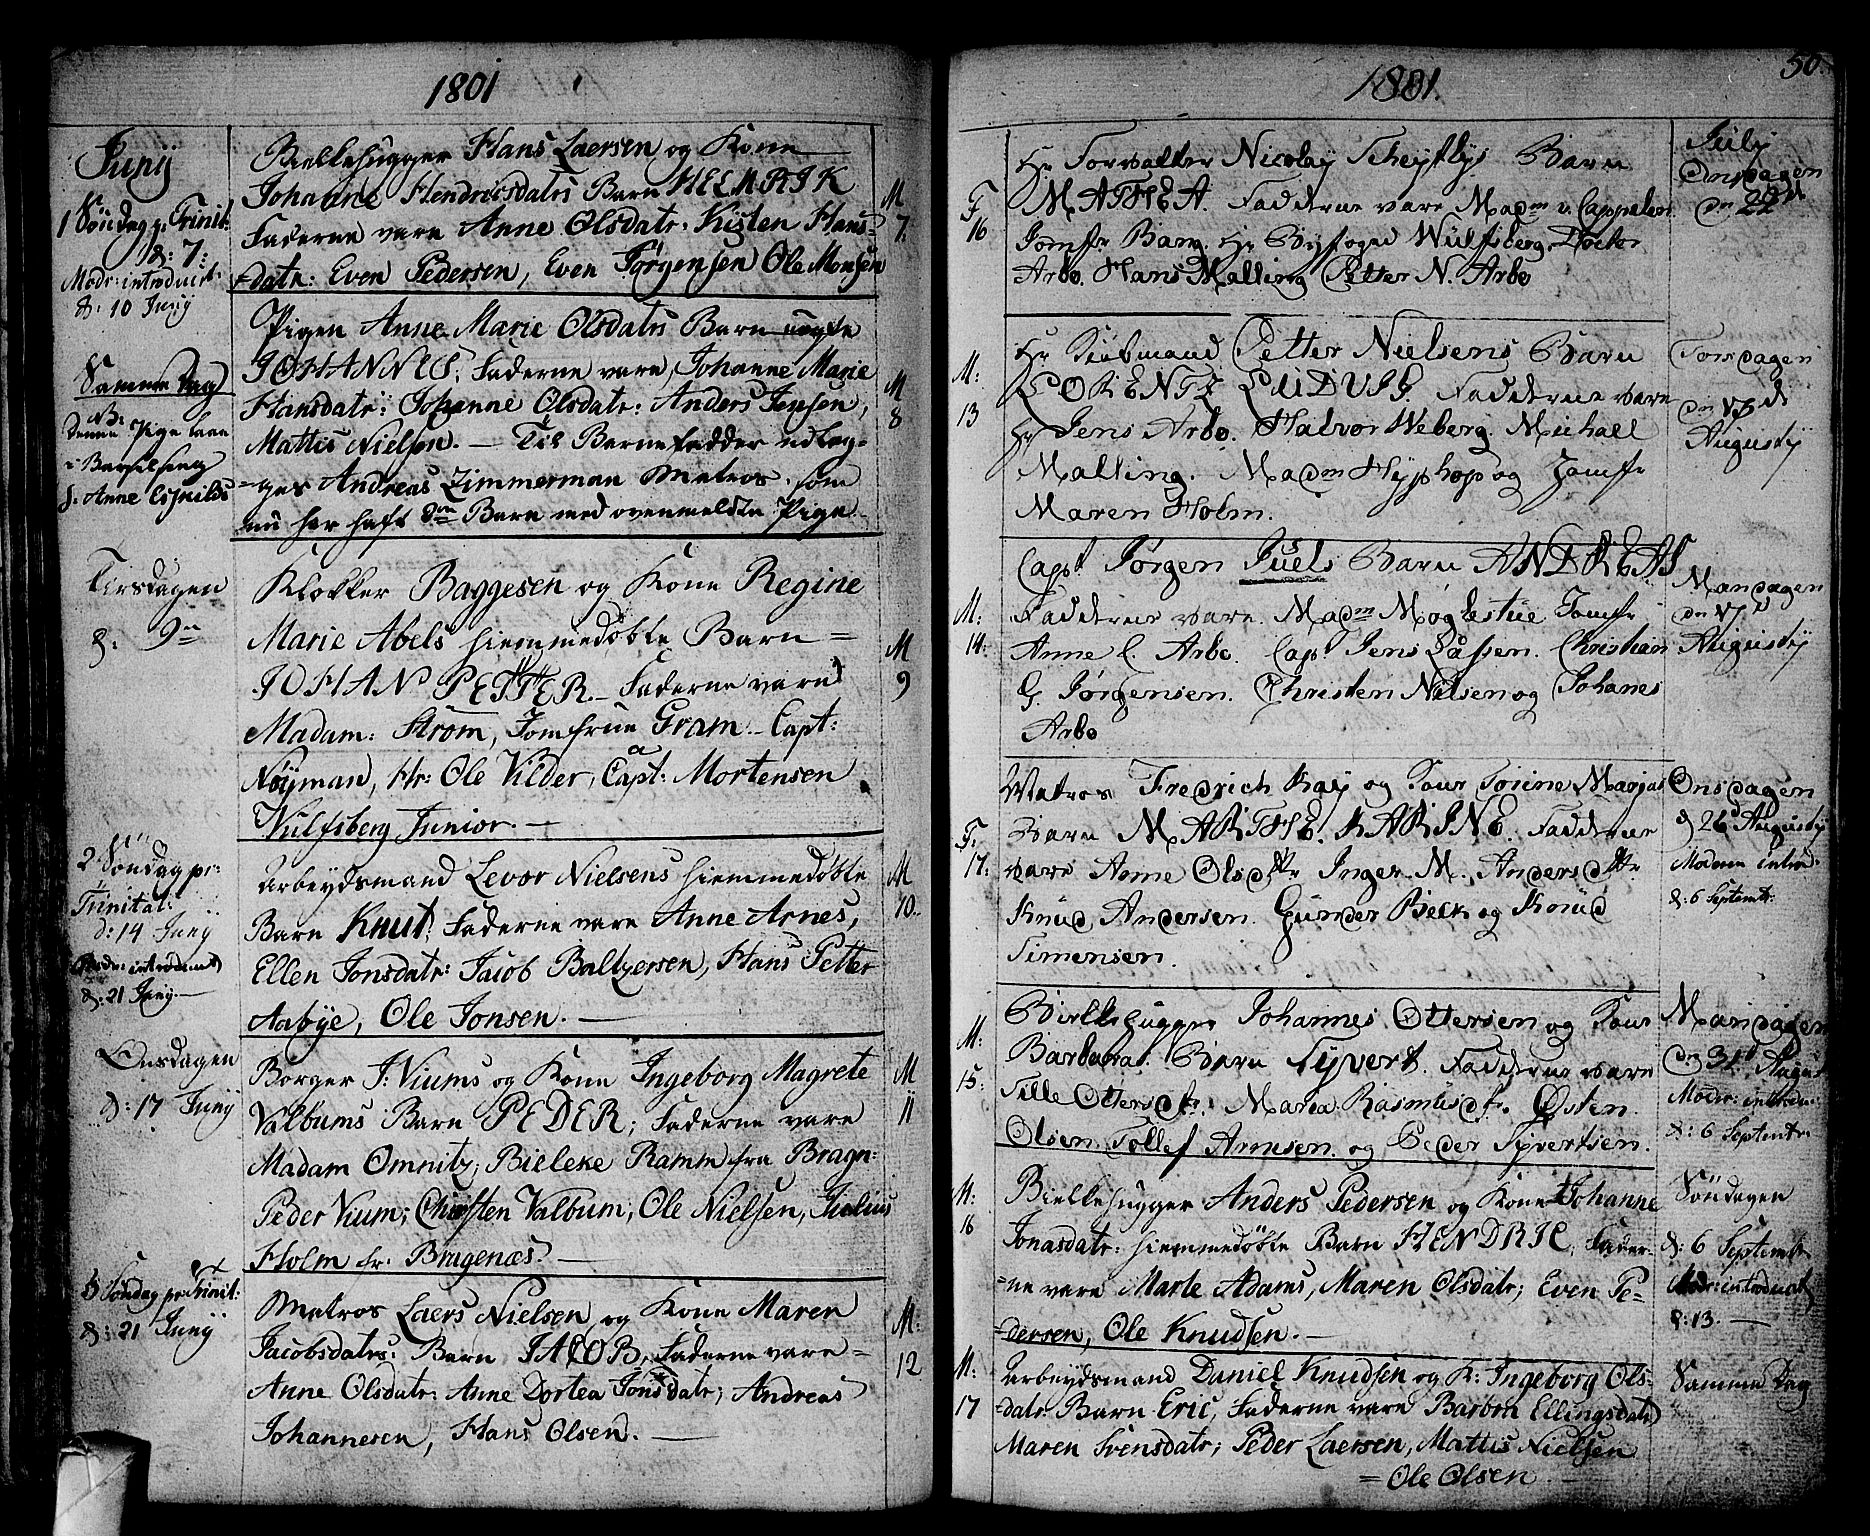 1801
Junÿ
1 Söndag p: Trinit:
d: 7:
Modr: introduct:
d: 10 Junÿ
Biellehugger Hans Laersen og Kone
Johanne Hendricsdatrs Barn HELMRIK
Faderne vare Anne Olsdatr. Kisten Hans-
datr: Even Pedersen, Even Jörgensen Ole Monsen
M
7.
Samme Dag
NB:
Denne Pige laae
i Barselseng
h: Anne Espnilds
Pigen Anne Marie Olsdatrs Barn uægte
JOHANNES; Faderne vare, Johanne Marie
Hansdatr: Johanne Olsdatr: Anders Jensen,
Mattis Nielson. — Til Barnefadder udlæg-
ges Andreas Zimmerman Matros. som
nu har haft 2den Barn med ovenmeldte Pige.
M
8
Tirsdagen
d: 9n
Klokker Baggesen og Kone Regine
Marie Abels hiemmedöbte Barn =
JOHAN PETTER. — Faderne vare
Madam: Ström, Jomfrue Gram — Capt:
Nöyman, Hr: Ole Vilder, Capt: a Mortensen
Wulfsberg Junior. —
M
9
2 Söndag pr:
Trinitat:
d: 14 Junÿ
Modr: introducert
d: 21 Junÿ —
Arbeydsmand Levor Nielsens hiemmedöbte
Barn Knut; Faderne vare Anne Arnes,
Ellen Jonsdatr: Jacob Baltzersen, Hans Petter
Aabÿe, Ole Jonsen. —
M
10.
Onsdagen
d: 17 Junÿ
Borger J: Viums og Kone Ingeborg Magrete
Valbums Barn PEDER; Faderne vare
Madam Omnitz, Bieleke Ramm fra Bragn:
Peder Vium; Christen Valbum; Ole Nielsen, Julius
Holm fr: Bragenæs. —
M
11
3 Söndag pr Trinit:
d: 21 Junÿ
Matros Laers Nielsen og Kone Maren
Jacobsdatrs: Barn JACOB, Faderne vare =
Anne Olsdatr: Anne Dortea Jonsdatr; Andreas
Johannesen, Hans Olsen. —
M:
12
1801.
50.
F
16
Hr Forvalter Nicolaÿ Scheÿtlys Barn
MATHEA. Fadderne vare Madm v Cappelen
Jomfr Barg. Hr Byfogd Wulfsberg. Doctor
Arbo. Hans Malling Petter N. Arbo
Julÿ
Onsdagen
dn 22d
M:
13
Hr Kiöbmand Petter Nielsens Barn
LORENTZ LUDVIG. Fadderne vare
Hr Jens Arbo. Halvor Weberg. Michall
Malling. Madm Hyphop og Jomfr
Maren Holm.
Torsdagen
Augustÿ
M:
14:
Capt Jørgen Juels Barn ANDREAS
Fadderne vare. Madm Møglestue Jomfr
Anne C. Arbo. Cap. Jens Lassen. Christian
G. Jørgensen. Christen Nielsen og Johanes
Arbo
Mandagen
Augustÿ
F:
17:
Matros Fredrich Kaÿ og Kone Torine Marias
Barn MARTHE KARINE. Fadderne
vare Anne Olsdtr Inger M. Andersdtr
Knud Andersen. Gunder Beck og Knud
Simensen.
Onsdagen
d 26 Augustÿ
Moderen introd:
d: 6 Septembr:
M:
15:
Biellehugger Johannes Ottersen og Kone
Barbara. Barn Syvert. Fadderne vare
Sille Ottersdr. Maria Rasmusdr. Østen
Olsen. Tollef Arnesen. og Peder Syvertsen.
Mandagen
dn 31 August
Modr: introdu:
d: 6 Septembr.
M:
16
Biellehugger Anders Pedersen og Kone Johanne
Jonasdatr: hiemmedöbte Barn HENDRIC; Fader-
ne vare Marte Adams, Maren Olsdatr; Even Pe-
dersen, Ole Knudsen. —
Söndagen
d: 6 Septembr
Modr: introduct
d: 13. —
M:
17
Arbeydsmand Daniel Knudsen og K: Ingeborg Ols-
datr. Barn Eric, Faderne vare Barbra Ellingsdatr
Maren Svensdatr; Peder Laersen, Mattis Nielsen
= Ole Olsen. —
Samme Dag